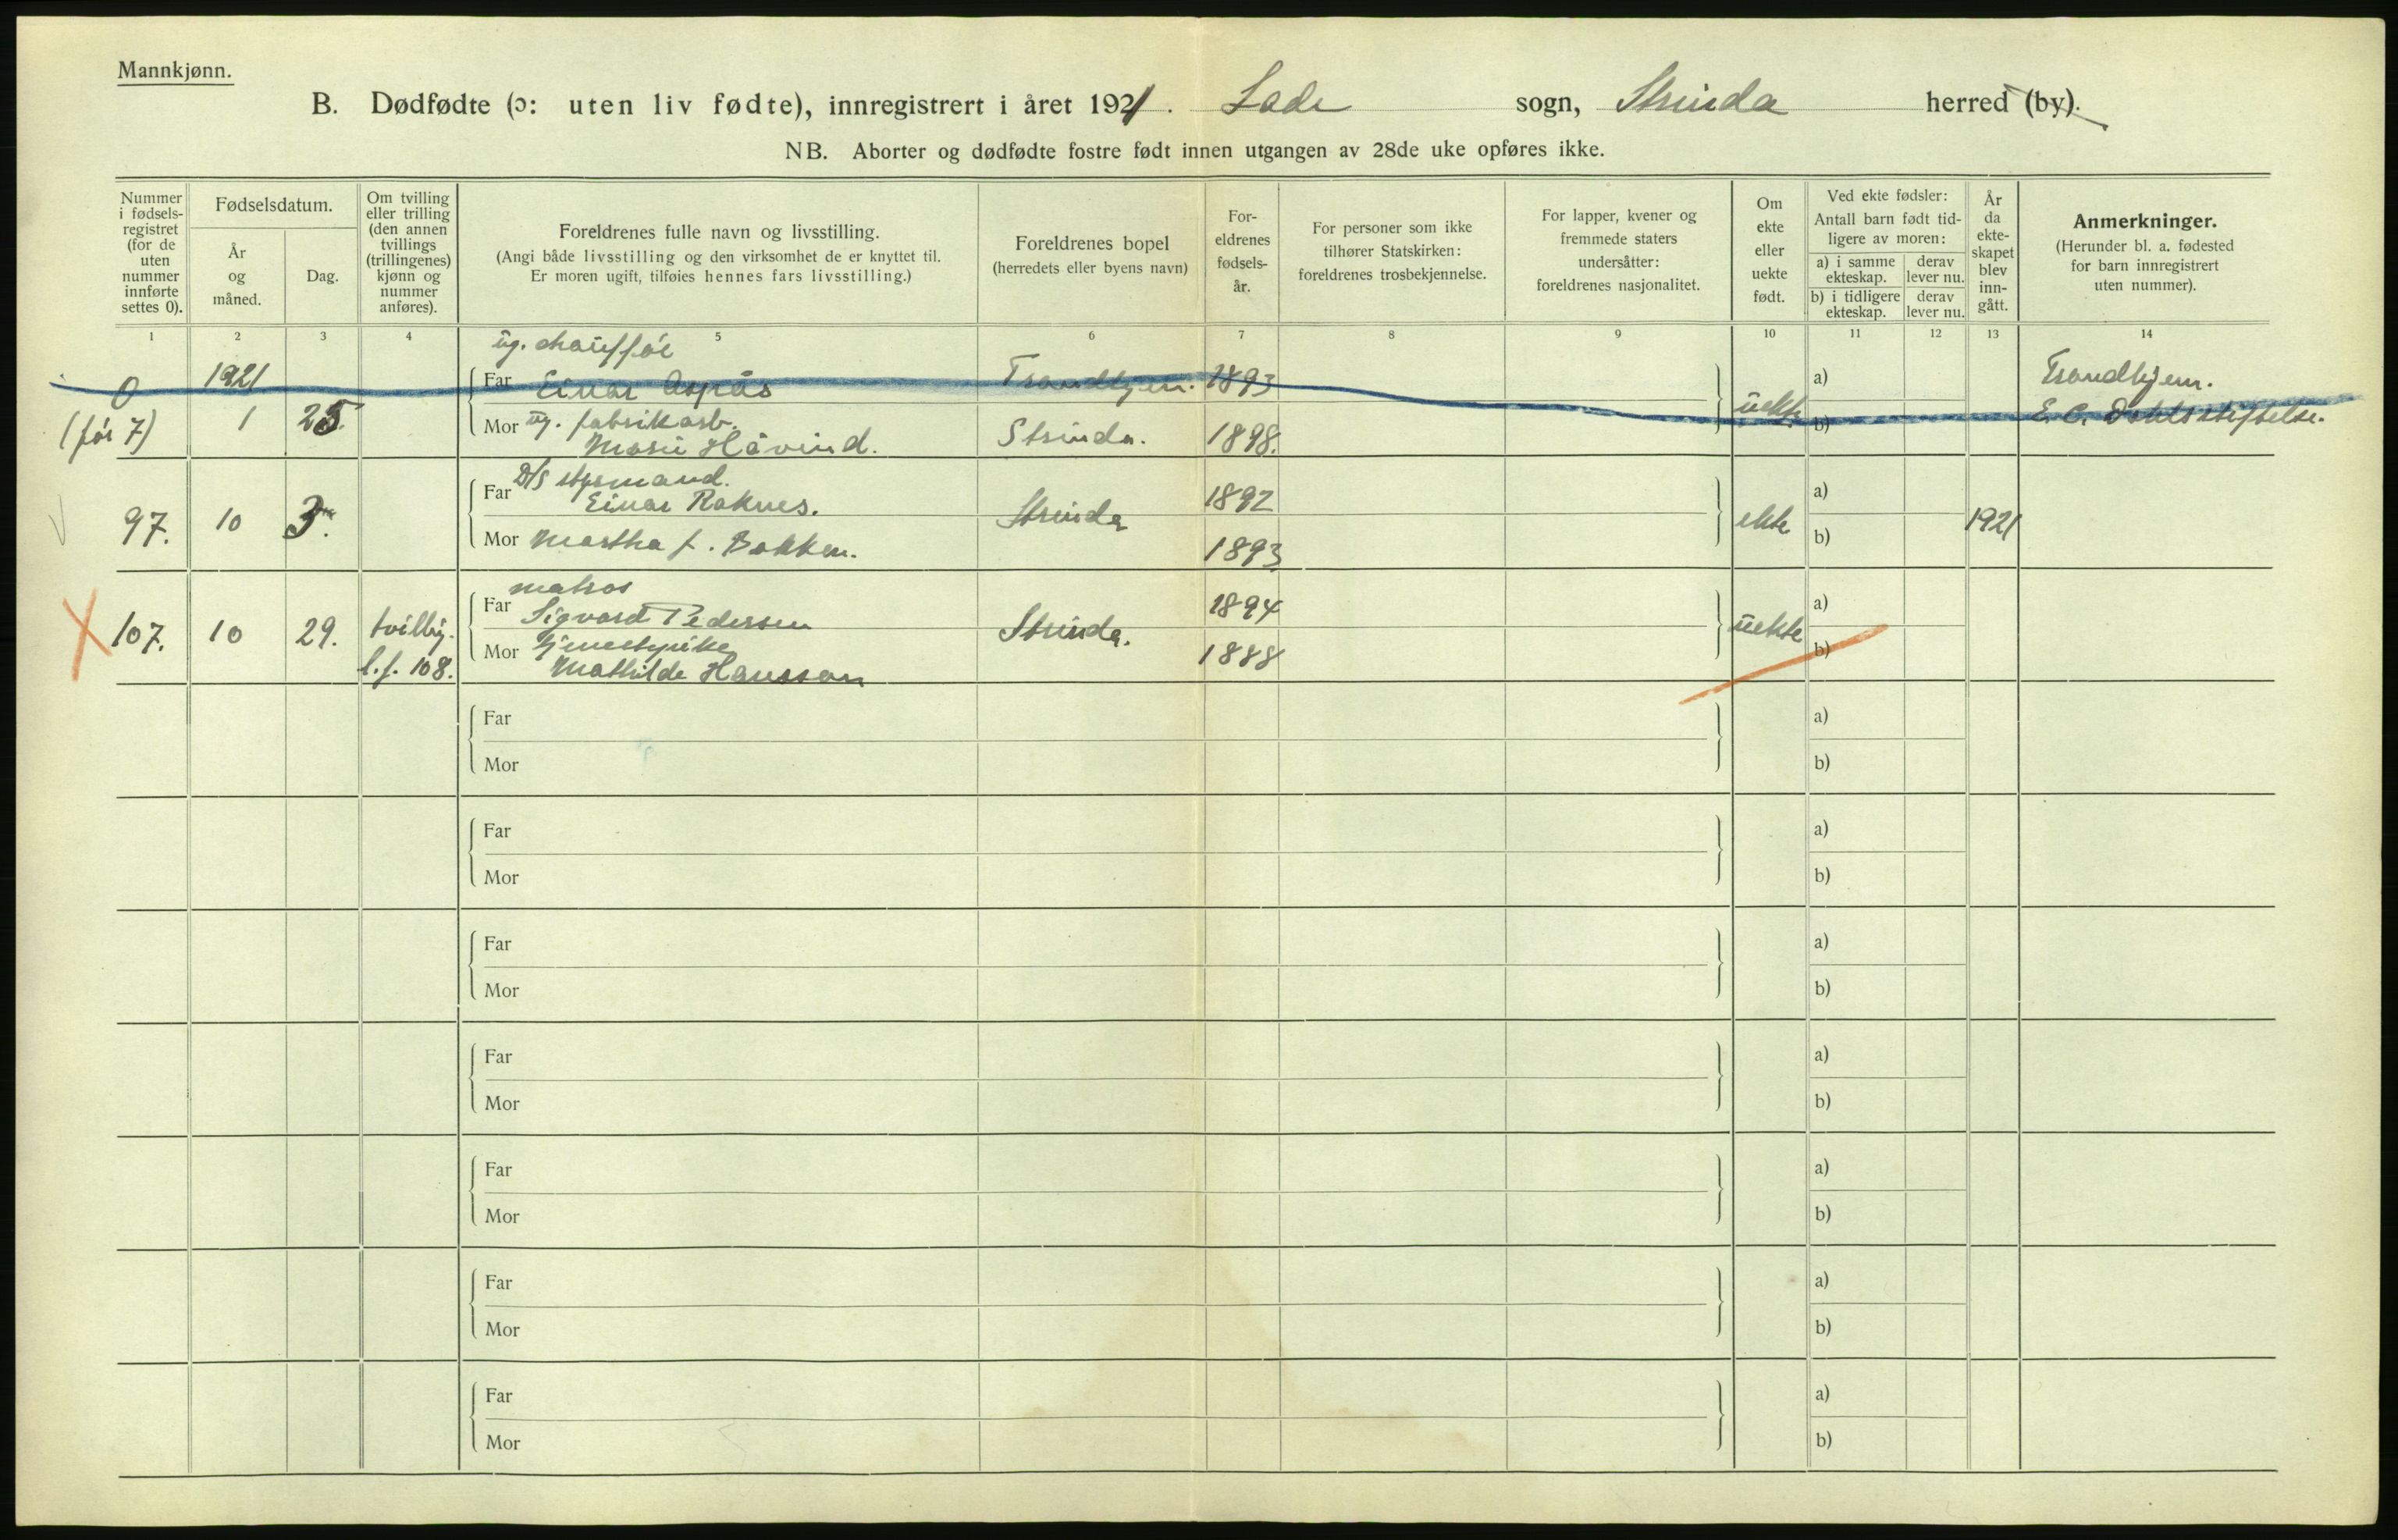 Mannkjønn.
B. Dødfødte (ɔ: uten liv fødte), innregistrert i året 1921. Lade sogn, Strinda herred (by).
NB. Aborter og dødfødte fostre født innen utgangen av 28de uke opføres ikke.
Nummer i fødsels-registret (for de uten nummer innførte settes 0).
Fødselsdatum.
År og måned.
Dag.
Om tvilling eller trilling (den annen tvillings (trillingenes) kjønn og nummer anføres).
Foreldrenes fulle navn og livsstilling.
(Angi både livsstilling og den virksomhet de er knyttet til.
Er moren ugift, tilføies hennes fars livsstilling.)
Foreldrenes bopel
(herredets eller byens navn)
For-eldrenes fødsels-år.
For personer som ikke tilhører Statskirken: foreldrenes trosbekjennelse.
For lapper, kvener og fremmede staters undersåtter: foreldrenes nasjonalitet.
Om ekte eller uekte født.
Ved ekte fødsler:
Antall barn født tid-ligere av moren:
a) i samme ekteskap.
derav lever nu.
b) i tidligere ekteskap.
derav lever nu.
År da ekte-skapet blev inn-gått.
Anmerkninger.
(Herunder bl. a. fødested for barn innregistrert uten nummer).
1 2 3 4 5 6 7 8 9 10 11 12 13 14
ug. chauffør
0 1921 Far Einar Aspås Trondhjem. 1893 a) Trondhjem.
(før 7) 1 25. Mor ug. fabrikarb. uekte b) E. C. Dahls stiftelse.
Marie Håvind. Strinda. 1898.
D/S styrmand.
Far Einar Raknes. 1892 a)
97. 10 3. Strinda ekte 1921
Mor Martha f. Bakken. 1893 b)
matros
Far Sigvard Pedersen 1894 a)
107. 10 29. tvilling. Strinda. uekte
l.f. 108. Mor tjenestepike 1888 b)
Mathilde Hansson
Far a)
Mor b)
Far a)
Mor b)
Far a)
Mor b)
Far a)
Mor b)
Far a)
Mor b)
Far a)
Mor b)
Far a)
Mor b)